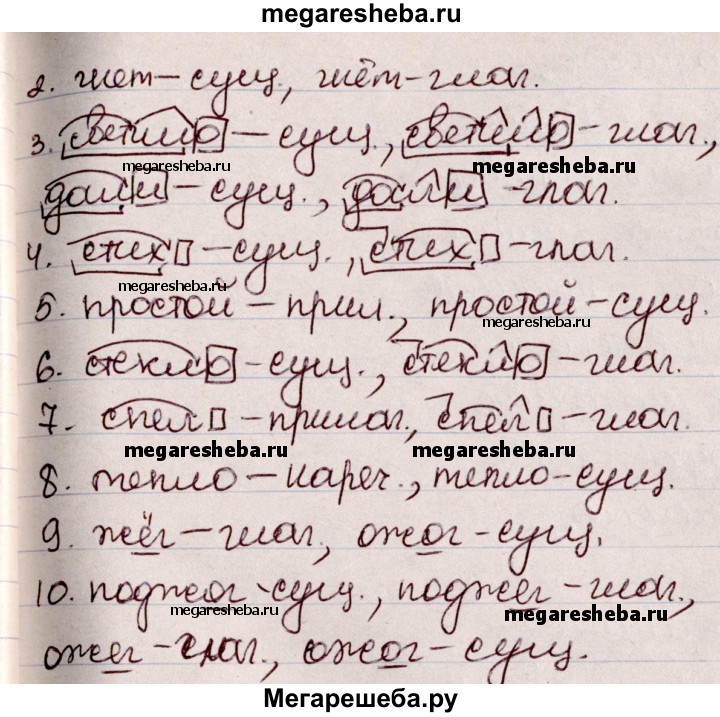 megaresheba.ru
2. шет – сущ., шёт – глаг.
3. светило – сущ., светило – глаг.,
megaresheba.ru megaresheba.ru
дали – сущ., дали – глаг.
4. стих – сущ., стих – глаг.
megaresheba.ru
5. простой – прил., простой – сущ.
megaresheba.ru
6. стекло – сущ., стекло – глаг.
7. спел – прилаг., спел – глаг.
megaresheba.ru megaresheba.ru
8. тепло – нареч., тепло – сущ.
9. жёг – глаг., ожог – сущ.
10. поджог – сущ., поджег – глаг.,
megaresheba.ru megaresheba.ru
ожег – глаг., ожог – сущ.
Мегарешеба.ру